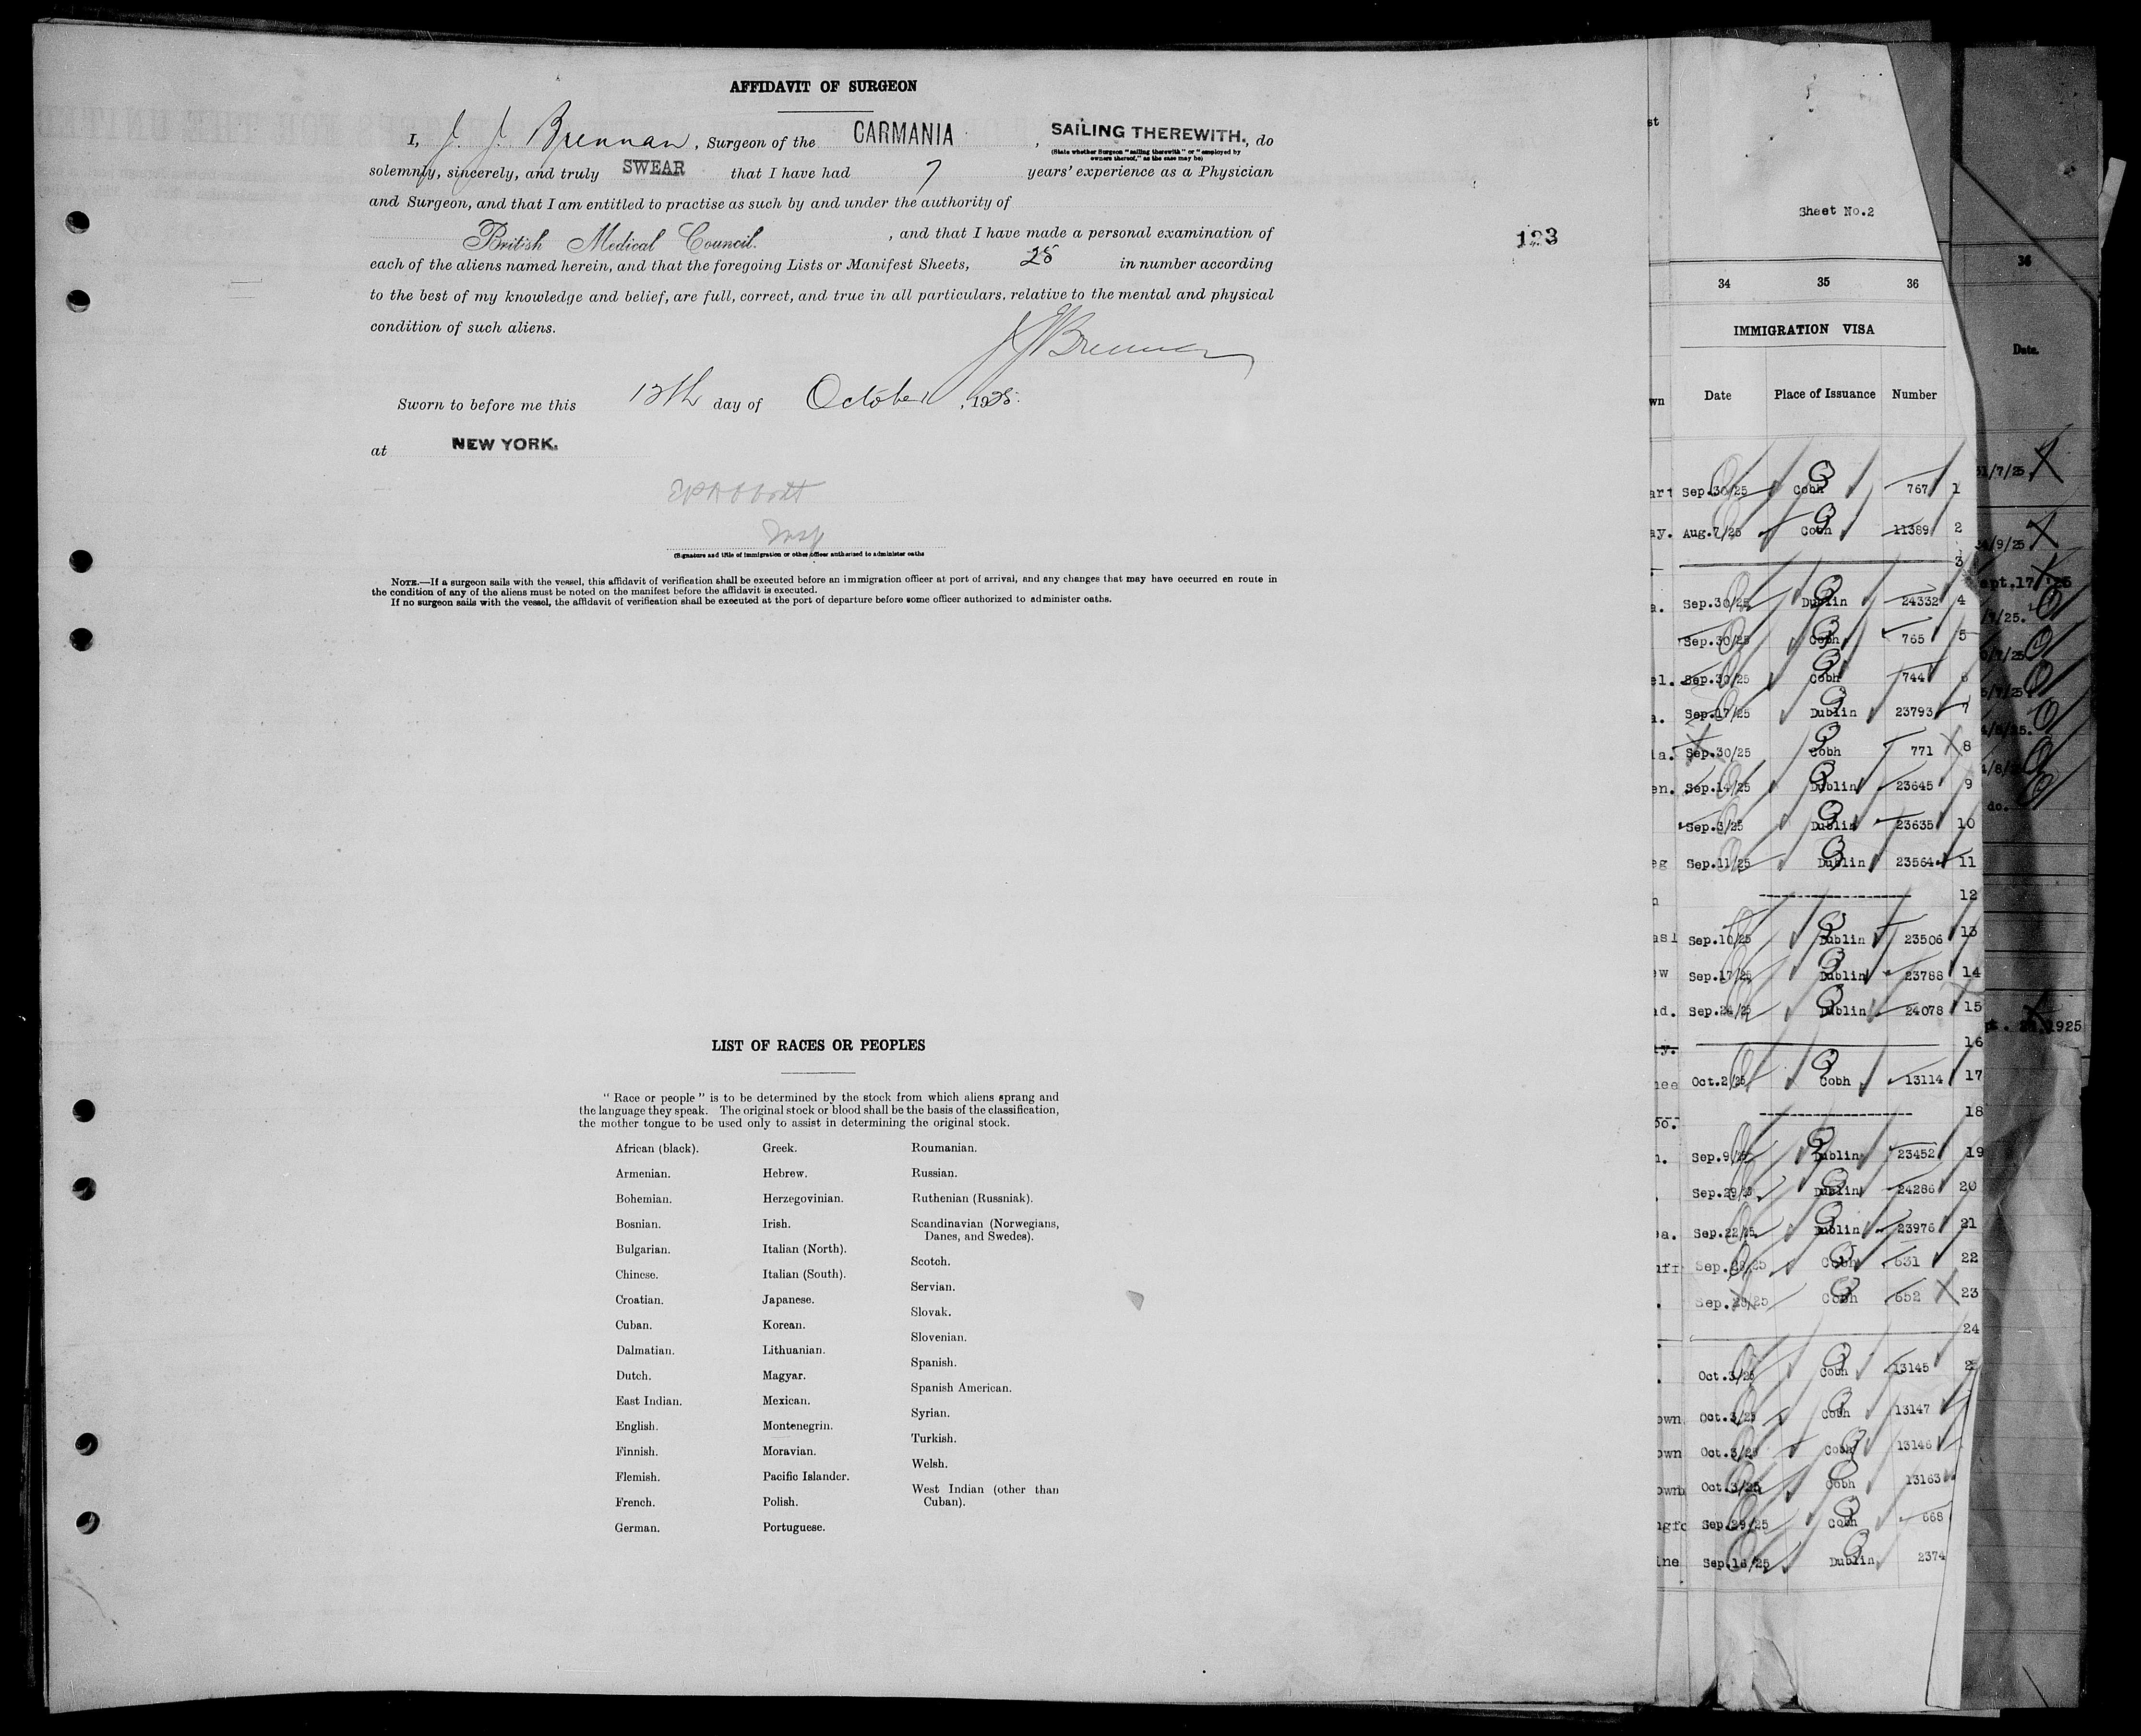 AFFIDAVIT OF SURGEON
I, J. J. Brennan, Surgeon of the CARMANIA, SAILING THEREWITH., do
(State whether Surgeon "sailing therewith" or "employed by
owners thereof," as the case may be)
solemnly, sincerely, and truly SWEAR that I have had 7 years' experience as a Physician
and Surgeon, and that I am entitled to practise as such by and under the authority of
British Medical Council. , and that I have made a personal examination of
each of the aliens named herein, and that the foregoing Lists or Manifest Sheets, 25 in number according
to the best of my knowledge and belief, are full, correct, and true in all particulars, relative to the mental and physical
condition of such aliens.
J J Brennan
Sworn to before me this 12th day of October, 1925.
at NEW YORK.
Insp
(Signature and title of immigration or other officer authorized to administer oaths
NOTE.—If a surgeon sails with the vessel, this affidavit of verification shall be executed before an immigration officer at port of arrival, and any changes that may have occurred en route in
the condition of any of the aliens must be noted on the manifest before the affidavit is executed.
If no surgeon sails with the vessel, the affidavit of verification shall be executed at the port of departure before some officer authorized to administer oaths.
123
LIST OF RACES OR PEOPLES
" Race or people " is to be determined by the stock from which aliens sprang and
the language they speak. The original stock or blood shall be the basis of the classification,
the mother tongue to be used only to assist in determining the original stock.
African (black).
Armenian.
Bohemian.
Bosnian.
Bulgarian.
Chinese.
Croatian.
Cuban.
Dalmatian.
Dutch.
East Indian.
English.
Finnish.
Flemish.
French.
German.
Greek.
Hebrew.
Herzegovinian.
Irish.
Italian (North).
Italian (South).
Japanese.
Korean.
Lithuanian.
Magyar.
Mexican.
Montenegrin.
Moravian.
Pacific Islander.
Polish.
Portuguese.
Roumanian.
Russian.
Ruthenian (Russniak).
Scandinavian (Norwegians,
Danes, and Swedes).
Scotch.
Servian.
Slovak.
Slovenian.
Spanish.
Spanish American.
Syrian.
Turkish.
Welsh.
West Indian (other than
Cuban).
Sheet No.2
34 35 36
IMMIGRATION VISA
Date Place of Issuance Number
Sep.30/25 Cobh 767 1
Aug.7/25 Cobh 11389 2
3
Sep.30/25 Dublin 24332 4
Sep.30/25 Cobh 765 5
Sep.30/25 Cobh 744 6
Sep.17/25 Dublin 23793 7
Sep.30/25 Cobh 771 8
Sep.14/25 Dublin 23645 9
Sep.3/25 Dublin 23635 10
Sep.11/25 Dublin 23564 11
12
Sep.10/25 Dublin 23506 13
Sep.17/25 Dublin 23788 14
Sep.24/25 Dublin 24078 15
16
Oct.2/25 Cobh 13114 17
18
Sep.9/25 Dublin 23452 19
Sep.29/25 Dublin 24286 20
Sep.22/25 Dublin 23976 21
Cobh 631 22
Cobh 652 23
24
Oct.3/25 Cobh 13145
Oct.3/25 Cobh 13147
Oct.3/25 Cobh 13146
Oct.3/25 Cobh 13163
Sep.29/25 Cobh 668
Sep.16/25 Dublin 2374
36
Date.